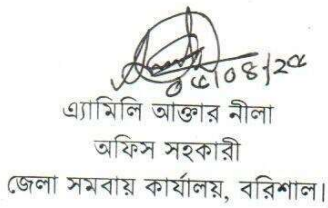 ০৫/০৪/২৫
এ্যামিলি আক্তার নীলা
অফিস সহকারী
জেলা সমবায় কার্যালয়, বরিশাল।